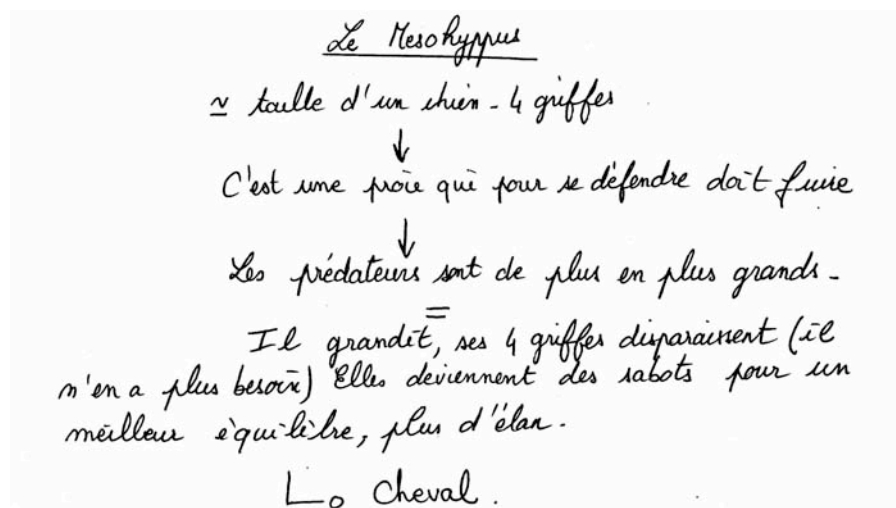 Le Mesohyppus
≃ taille d'un chien - 4 griffes
↓
C'est une proie qui pour se défendre doit fuire
↓
Les prédateurs sont de plus en plus grands -
=
Il grandit, ses 4 griffes disparaissent (il
n'en a plus besoin) Elles deviennent des sabots pour un
meilleur équilibre, plus d'élan.
↳ Cheval.